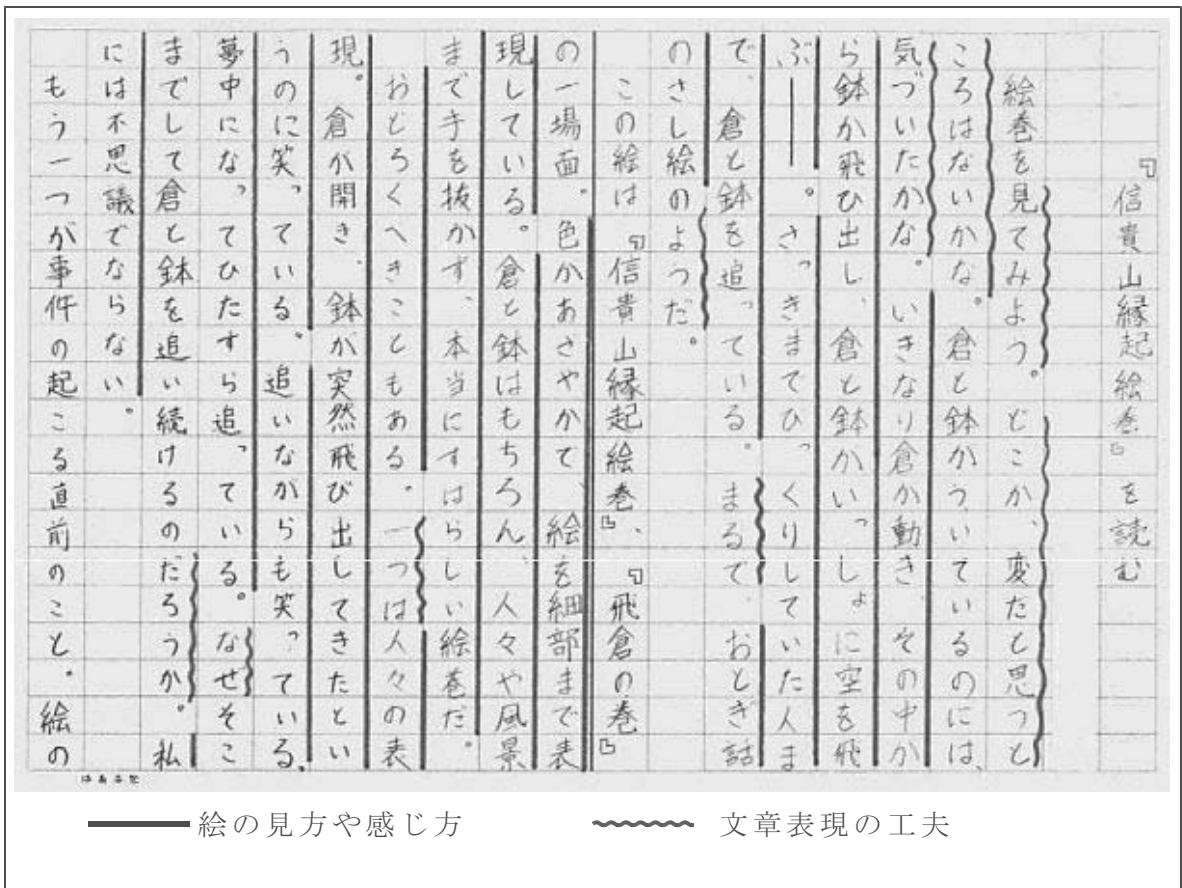 『信貴山縁起絵巻』を読む
絵巻を見てみよう。どこか、変だと思うと
ころはないかな。倉と鉢がういているのには、
気づいたかな。いきなり倉が動き、その中か
ら鉢が飛び出し、倉と鉢がいっしょに空を飛
ぶ――。さっきまでびっくりしていた人ま
で、倉と鉢を追っている。まるで、おとぎ話
のさし絵のようだ。
この絵は『信貴山縁起絵巻』、『飛倉の巻』
の一場面。色があざやかで、絵を細部まで表
現している。倉と鉢はもちろん、人々や風景
まで手を抜かず、本当にすばらしい絵巻だ。
おどろくべきこともある。一つは人々の表
現。倉が開き、鉢が突然飛び出してきたとい
うのに笑っている。追いながらも笑っている、
夢中になってひたすら追っている。なぜそこ
までして倉と鉢を追い続けるのだろうか。私
には不思議でならない。
もう一つが事件の起こる直前のこと。絵の
絵の見方や感じ方
文章表現の工夫